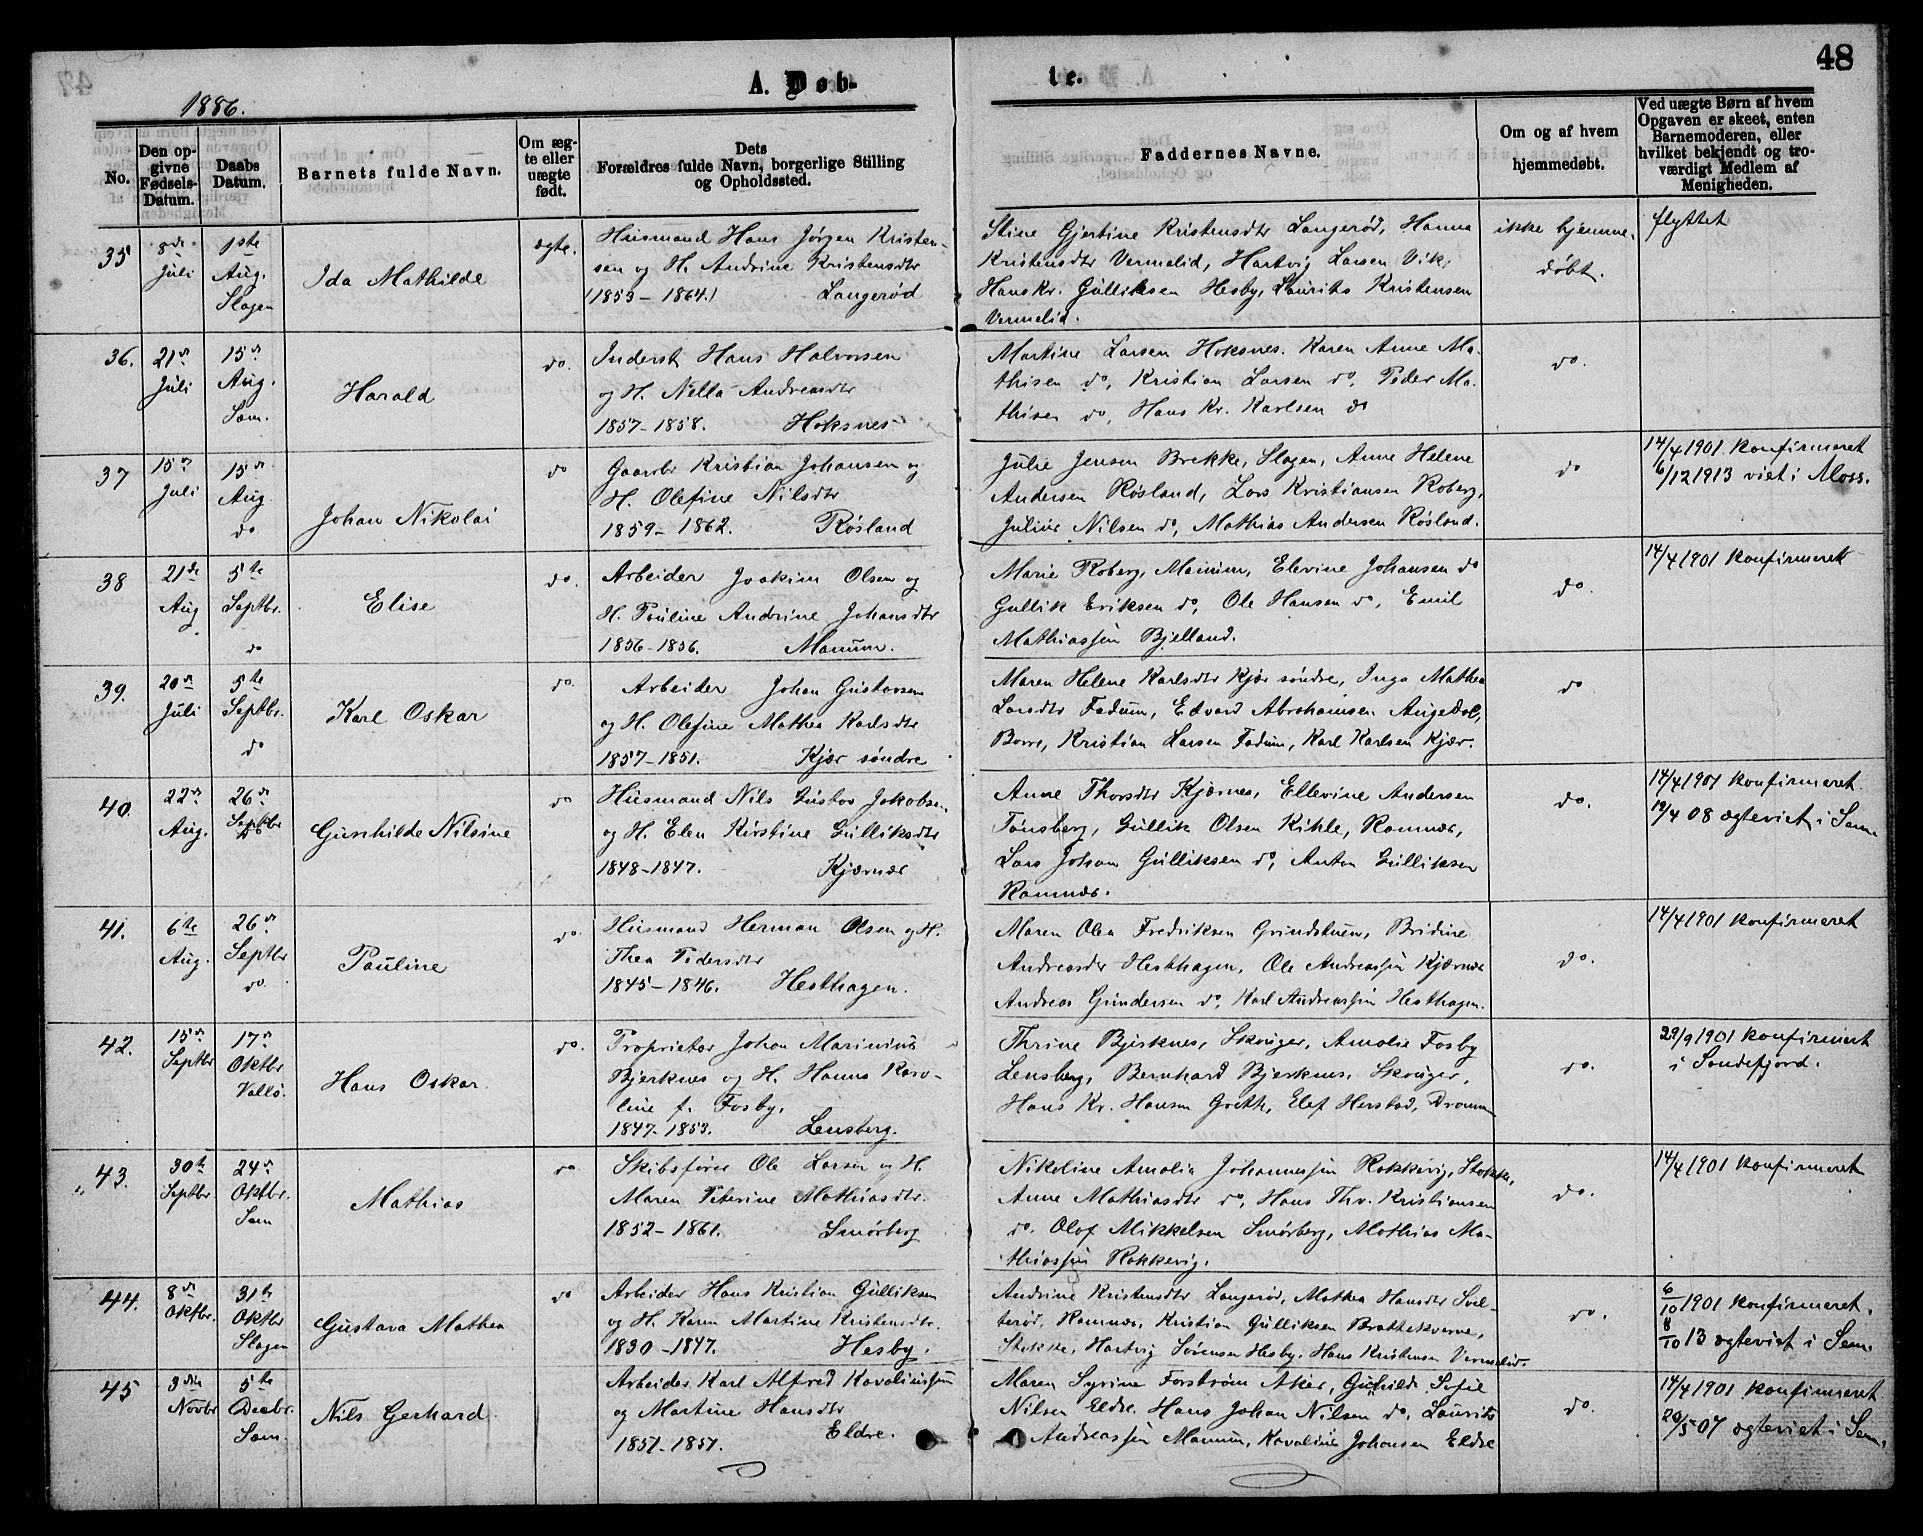 48
A. Døb-
te.
1886.
No.
Den op-
givne
Fødsels-
Datum.
Daabs
Datum.
Barnets fulde Navn.
Om æg-
te eller
uægte
født.
Dets
Forældres fulde Navn, borgerlige Stilling
og Opholdssted.
Faddernes Navne.
Om og af hvem
hjemmedøbt.
Ved uægte Børn af hvem
Opgaven er skeet, enten
Barnemoderen, eller
hvilket bekjendt og tro-
værdigt Medlem af
Menigheden.
35
8de
Juli
1ste
Aug.
Slagen
Ida Mathilde
ægte.
Husmand Hans Jørgen Kristen-
sen og H. Andrine Kristensdtr
(1853-1864.) Langerød
Stine Gjertine Kristensdtr Langerød, Hanna
Kristensdtr Vermelid, Hartvig Larsen Vik,
Hans Kr. Gulliksen Hesby, Laurits Kristensen
Vermelid.
ikke hjemme-
døbt.
flyttet
36.
21de
Juli
15de
Aug.
Sem.
Harald
do.
Inderst Hans Halvorsen
og H. Nella Andreasdtr
1857-1858. Hoksnes
Martine Larsen Hoksnes. Karen Anne Ma-
thisen do, Kristian Larsen do, Peder Ma-
thisen do, Hans Kr. Karlsen do
do.
37
15de
Juli
15de
Aug
do
Johan Nikolai
do
Gaardbr Kristian Johansen og
H. Olefine Nilsdtr
1859-1862. Røsland
Julie Jensen Brekke, Slagen, Anne Helene
Andersen Røsland, Lars Kristiansen Roberg,
Julius Nilsen do, Mathias Andersen Røsland.
do
14/4 1901 konfirmeret
6/12 1913 viet i Moss.
38
21de
Aug
5te
Septbr.
do
Elise
do.
Arbeider Joakim Olsen og
H. Pauline Andrine Johansdtr
1856-1856. Manum.
Marie Roberg, Manum, Elevine Johansen do
Gullik Eriksen do, Ole Hansen do, Emil
Mathiassen Bjelland.
do.
14/4 1901 konfirmeret
39.
20de
Juli
5te
Septbr.
do
Karl Oskar
do.
Arbeider Johan Gustavsen
og H. Olefine Mathea Karlsdtr
1857-1851. Kjær søndre
Maren Helene Karlsdtr Kjær søndre, Inga Mathea
Larsdtr Fadum, Edvard Abrahamsen Augedal,
Borre, Kristian Larsen Fadum, Karl Karlsen Kjær.
do
40.
22de
Aug.
26de
Septbr
Gunhilde Nilsine
do
Husmand Nils Gustav Jakobsen
og H. Elen Kirstine Gulliksdtr
1848-1847. Kjærnæs
Anne Thorsdtr Kjærnes, Ellevine Andersen
Tønsberg, Gullik Olsen Kihle, Ramnæs,
Lars Johan Gulliksen do, Anton Gulliksen
Ramnæs.
do.
14/4 1901 konfirmeret.
19/4 08 ægteviet i Sem
41.
6te
Aug.
26de
Septbr
do.
Pauline
do.
Husmand Herman Olsen og H.
Thea Pedersdtr
1845-1846. Hesthagen.
Maren Olea Fredriksen Grindstuen, Bridine
Andreasdtr Hesthagen, Ole Andreassen Kjærnæs
Andreas Gundersen do, Karl Andreassen Hesthagen.
do.
14/4 1901 konfirmeret
42.
15de
Septbr
17de
Oktbr
Vallø.
Hans Oskar
do.
Proprietær Johan Marinius
Bjerknes og H. Hanna Karo-
line f. Fosby,
1847-1853. Lensberg.
Thrine Bjerknes, Skouger, Amalie Fosby
Lensberg, Bernhard Bjerknes, Skouger,
Hans Kr. Hansen Greth, Elef Herstad, Drammen
do.
29/9 1901 konfirmert
i Sandefjord.
43.
30te
Septbr.
24de
Oktbr.
Sem
Mathias
do
Skibsfører Ole Larsen og H.
Maren Peterine Mathiasdtr.
1852-1861. Smørberg
Nikoline Amalia Johannessen Rakkevig, Stokke,
Anne Mathiasdtr do, Hans Thv. Kristiansen
do. Olaf Mikkelsen Smørberg, Mathias Ma-
thiassen Rakkevig.
do.
14/4 1901 konfirmeret
44.
8de
Oktbr.
31te
Oktbr
Slagen
Gustava Mathea
do
Arbeider Hans Kristian Gulliksen
og H. Karen Martine Kristensdtr.
1830-1847. Hesby.
Andrine Kristensdtr Langerød, Mathea Hansdtr Svel-
terød, Ramnæs, Kristian Gulliksen Brattekverne,
Stokke, Hartvig Sørensen Hesby, Hans Kristensen Vermelid.
do.
6/10 1901 konfirmeret.
8/10 13 ægteviet i Sem.
45
3die
Novbr
5te
Decbr.
Sem.
Nils Gerhard
Arbeider Karl Alfred Kavaliussen
og Martine Hansdtr
1851-1851. Eldre.
Maren Syrine Forstrøm Aker, Guhilde Sofie
Nilsen Eldre. Hans Johan Nilsen do, Laurits
Andreassen Manum, Kavalius Johansen Eldre
do.
14/4 1901 konfirmeret
20/5 07 ægteviet i Sem.